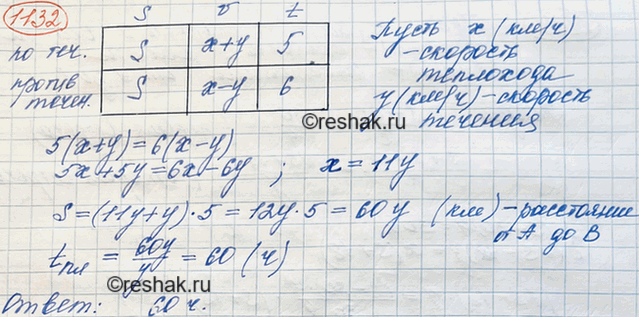 1132
S v t
по теч. S x+y 5
против течен. S x-y 6
Пусть x (км/ч)
-скорость
теплохода
y (км/ч)-скорость
течения
©reshak.ru
5(x+y)=6(x-y)
5x+5y=6x-6y ; x=11y
S=(11y+y)·5=12y·5=60y (км)-расстояние
от A до B
tпл = 60y/y = 60 (ч)
Ответ: 60 ч.
©reshak.ru